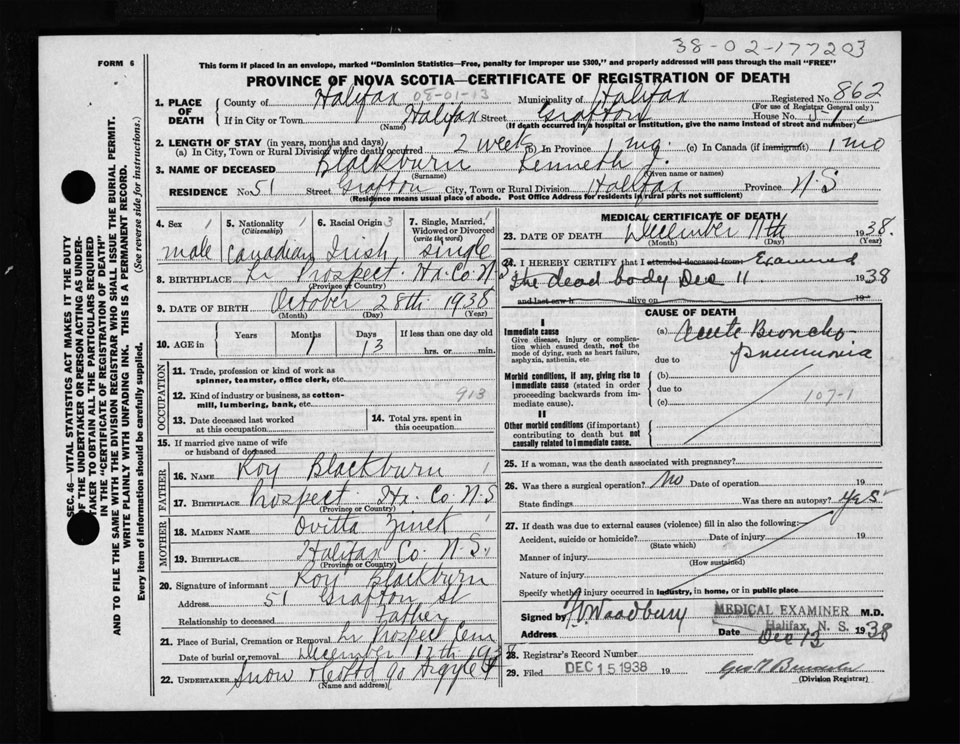 38-02-177203
FORM 6
This form if placed in an envelope, marked "Dominion Statistics—Free, penalty for improper use $300," and properly addressed will pass through the mail "FREE"
PROVINCE OF NOVA SCOTIA—CERTIFICATE OF REGISTRATION OF DEATH
1. PLACE OF DEATH County of Halifax 08-01-13 Municipality of Halifax Registered No. 862
(For use of Registrar General only)
If in City or Town Halifax Street Grafton House No. 51
(Name) (If death occurred in a hospital or institution, give the name instead of street and number)
2. LENGTH OF STAY (in years, months and days)
(a) In City, Town or Rural Division where death occurred 2 week (b) In Province 1 mo. (c) In Canada (if immigrant) 1 mo
3. NAME OF DECEASED Blackburn Kenneth J.
(Surname) (Given name or names)
RESIDENCE No. 51 Street Grafton City, Town or Rural Division Halifax Province N.S
(Residence means usual place of abode. Post Office Address for residents in rural parts not sufficient)
4. Sex 1 male
5. Nationality 1 (Citizenship) Canadian
6. Racial Origin 3 Irish
7. Single, Married, Widowed or Divorced (write the word) 1 Single
8. BIRTHPLACE Lr Prospect. Hx. Co. N
(Province or Country)
9. DATE OF BIRTH October 28th 1938
(Month) (Day) (Year)
10. AGE in Years Months 1 Days 13 If less than one day old hrs. or min.
OCCUPATION
11. Trade, profession or kind of work as spinner, teamster, office clerk, etc.
12. Kind of industry or business, as cotton-mill, lumbering, bank, etc. 913
13. Date deceased last worked at this occupation
14. Total yrs. spent in this occupation
15. If married give name of wife or husband of deceased
FATHER
16. NAME Roy Blackburn 1
17. BIRTHPLACE Prospect. Hx. Co. N.S
(Province or Country)
MOTHER
18. MAIDEN NAME Ovitta Zinck 1
19. BIRTHPLACE Halifax Co. N.S.
(Province or Country)
20. Signature of informant Roy Blackburn
Address 51 Grafton St
Relationship to deceased Father
21. Place of Burial, Cremation or Removal Lr Prospect Cem
Date of burial or removal December 13th 1938
22. UNDERTAKER Snow & Co Ltd 90 Argyle St
(Name and address)
MEDICAL CERTIFICATE OF DEATH
23. DATE OF DEATH December 11th 1938.
(Month) (Day) (Year)
24. I HEREBY CERTIFY that I attended deceased from Examined
the dead body Dec 11 1938
and last saw h alive on 19
CAUSE OF DEATH
I
Immediate cause
Give disease, injury or complication which caused death, not the mode of dying, such as heart failure, asphyxia, asthenia, etc
(a) Acute Broncho-pneumonia
due to
Morbid conditions, if any, giving rise to immediate cause (stated in order proceeding backwards from immediate cause).
(b)
due to
(c) 107-1
II
Other morbid conditions (if important) contributing to death but not causally related to immediate cause.
25. If a woman, was the death associated with pregnancy?
26. Was there a surgical operation? No Date of operation 19
State findings Was there an autopsy? Yes
27. If death was due to external causes (violence) fill in also the following:—
Accident, suicide or homicide? Date of injury 19
(State which)
Manner of injury
(How sustained)
Nature of injury
Specify whether injury occurred in industry, in home, or in public place
Signed by Woodbury MEDICAL EXAMINER M.D.
Halifax, N. S.
Address Date Dec 13 1938
28. Registrar's Record Number
29. Filed DEC 15 1938 19
(Division Registrar)
SEC. 46—VITAL STATISTICS ACT MAKES IT THE DUTY
OF THE UNDERTAKER OR PERSON ACTING AS UNDERTAKER TO OBTAIN ALL THE PARTICULARS REQUIRED
IN THE "CERTIFICATE OF REGISTRATION OF DEATH"
AND TO FILE THE SAME WITH THE DIVISION REGISTRAR WHO SHALL ISSUE THE BURIAL PERMIT.
WRITE PLAINLY WITH UNFADING INK. THIS IS A PERMANENT RECORD.
Every item of information should be carefully supplied. (See reverse side for instructions.)